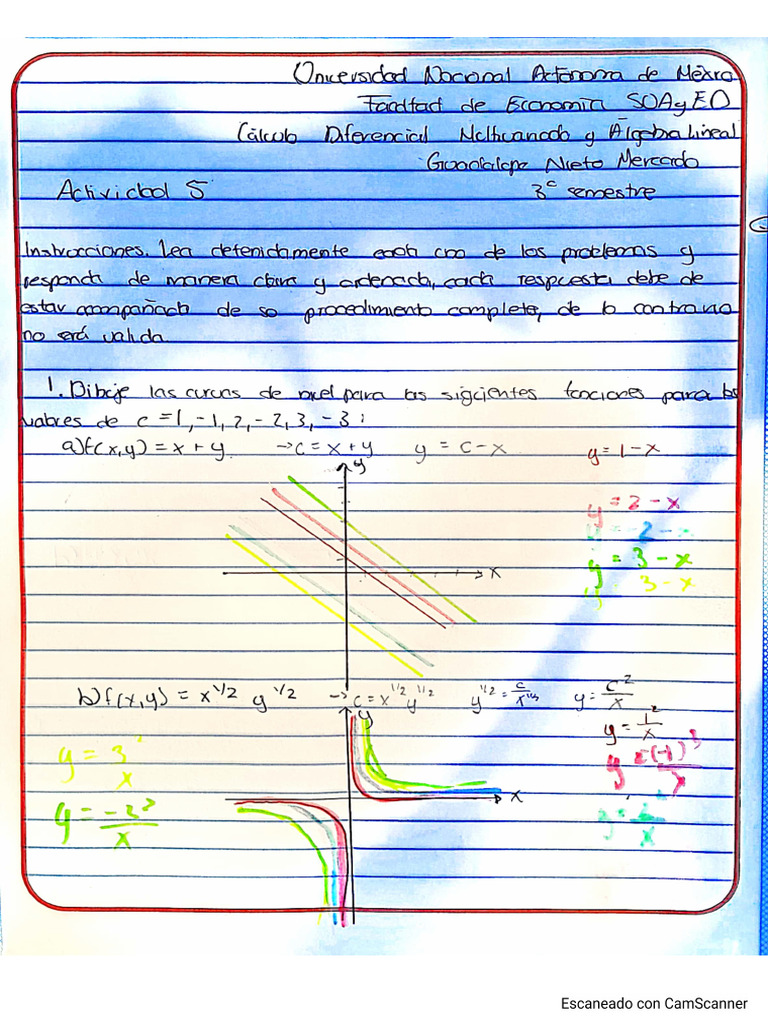 Universidad Nacional Autónoma de México
Facultad de Economía SUAyED
Cálculo Diferencial Multivariado y Álgebra Lineal
Guadalupe Nieto Mercado
Actividad 5 3º semestre
Instrucciones. Lea detenidamente cada uno de los problemas y
responda de manera clara y ordenada, cada respuesta debe de
estar acompañada de su procedimiento completo, de lo contrario
no será valida
1. Dibuje las curvas de nivel para las siguientes funciones para los
valores de c = 1, -1, 2, -2, 3, -3 :
a) f(x,y) = x + y → c = x + y y = c - x y = 1 - x
y
y = 2 - x
-2 -
y = 3 - x
3 - x
x
b) f(x,y) = x^1/2 y^1/2 → c = x^1/2 y^1/2 y^1/2 = c/x^1/2 y = c^2/x
y
y = 1^2/x
y = 3/x
x